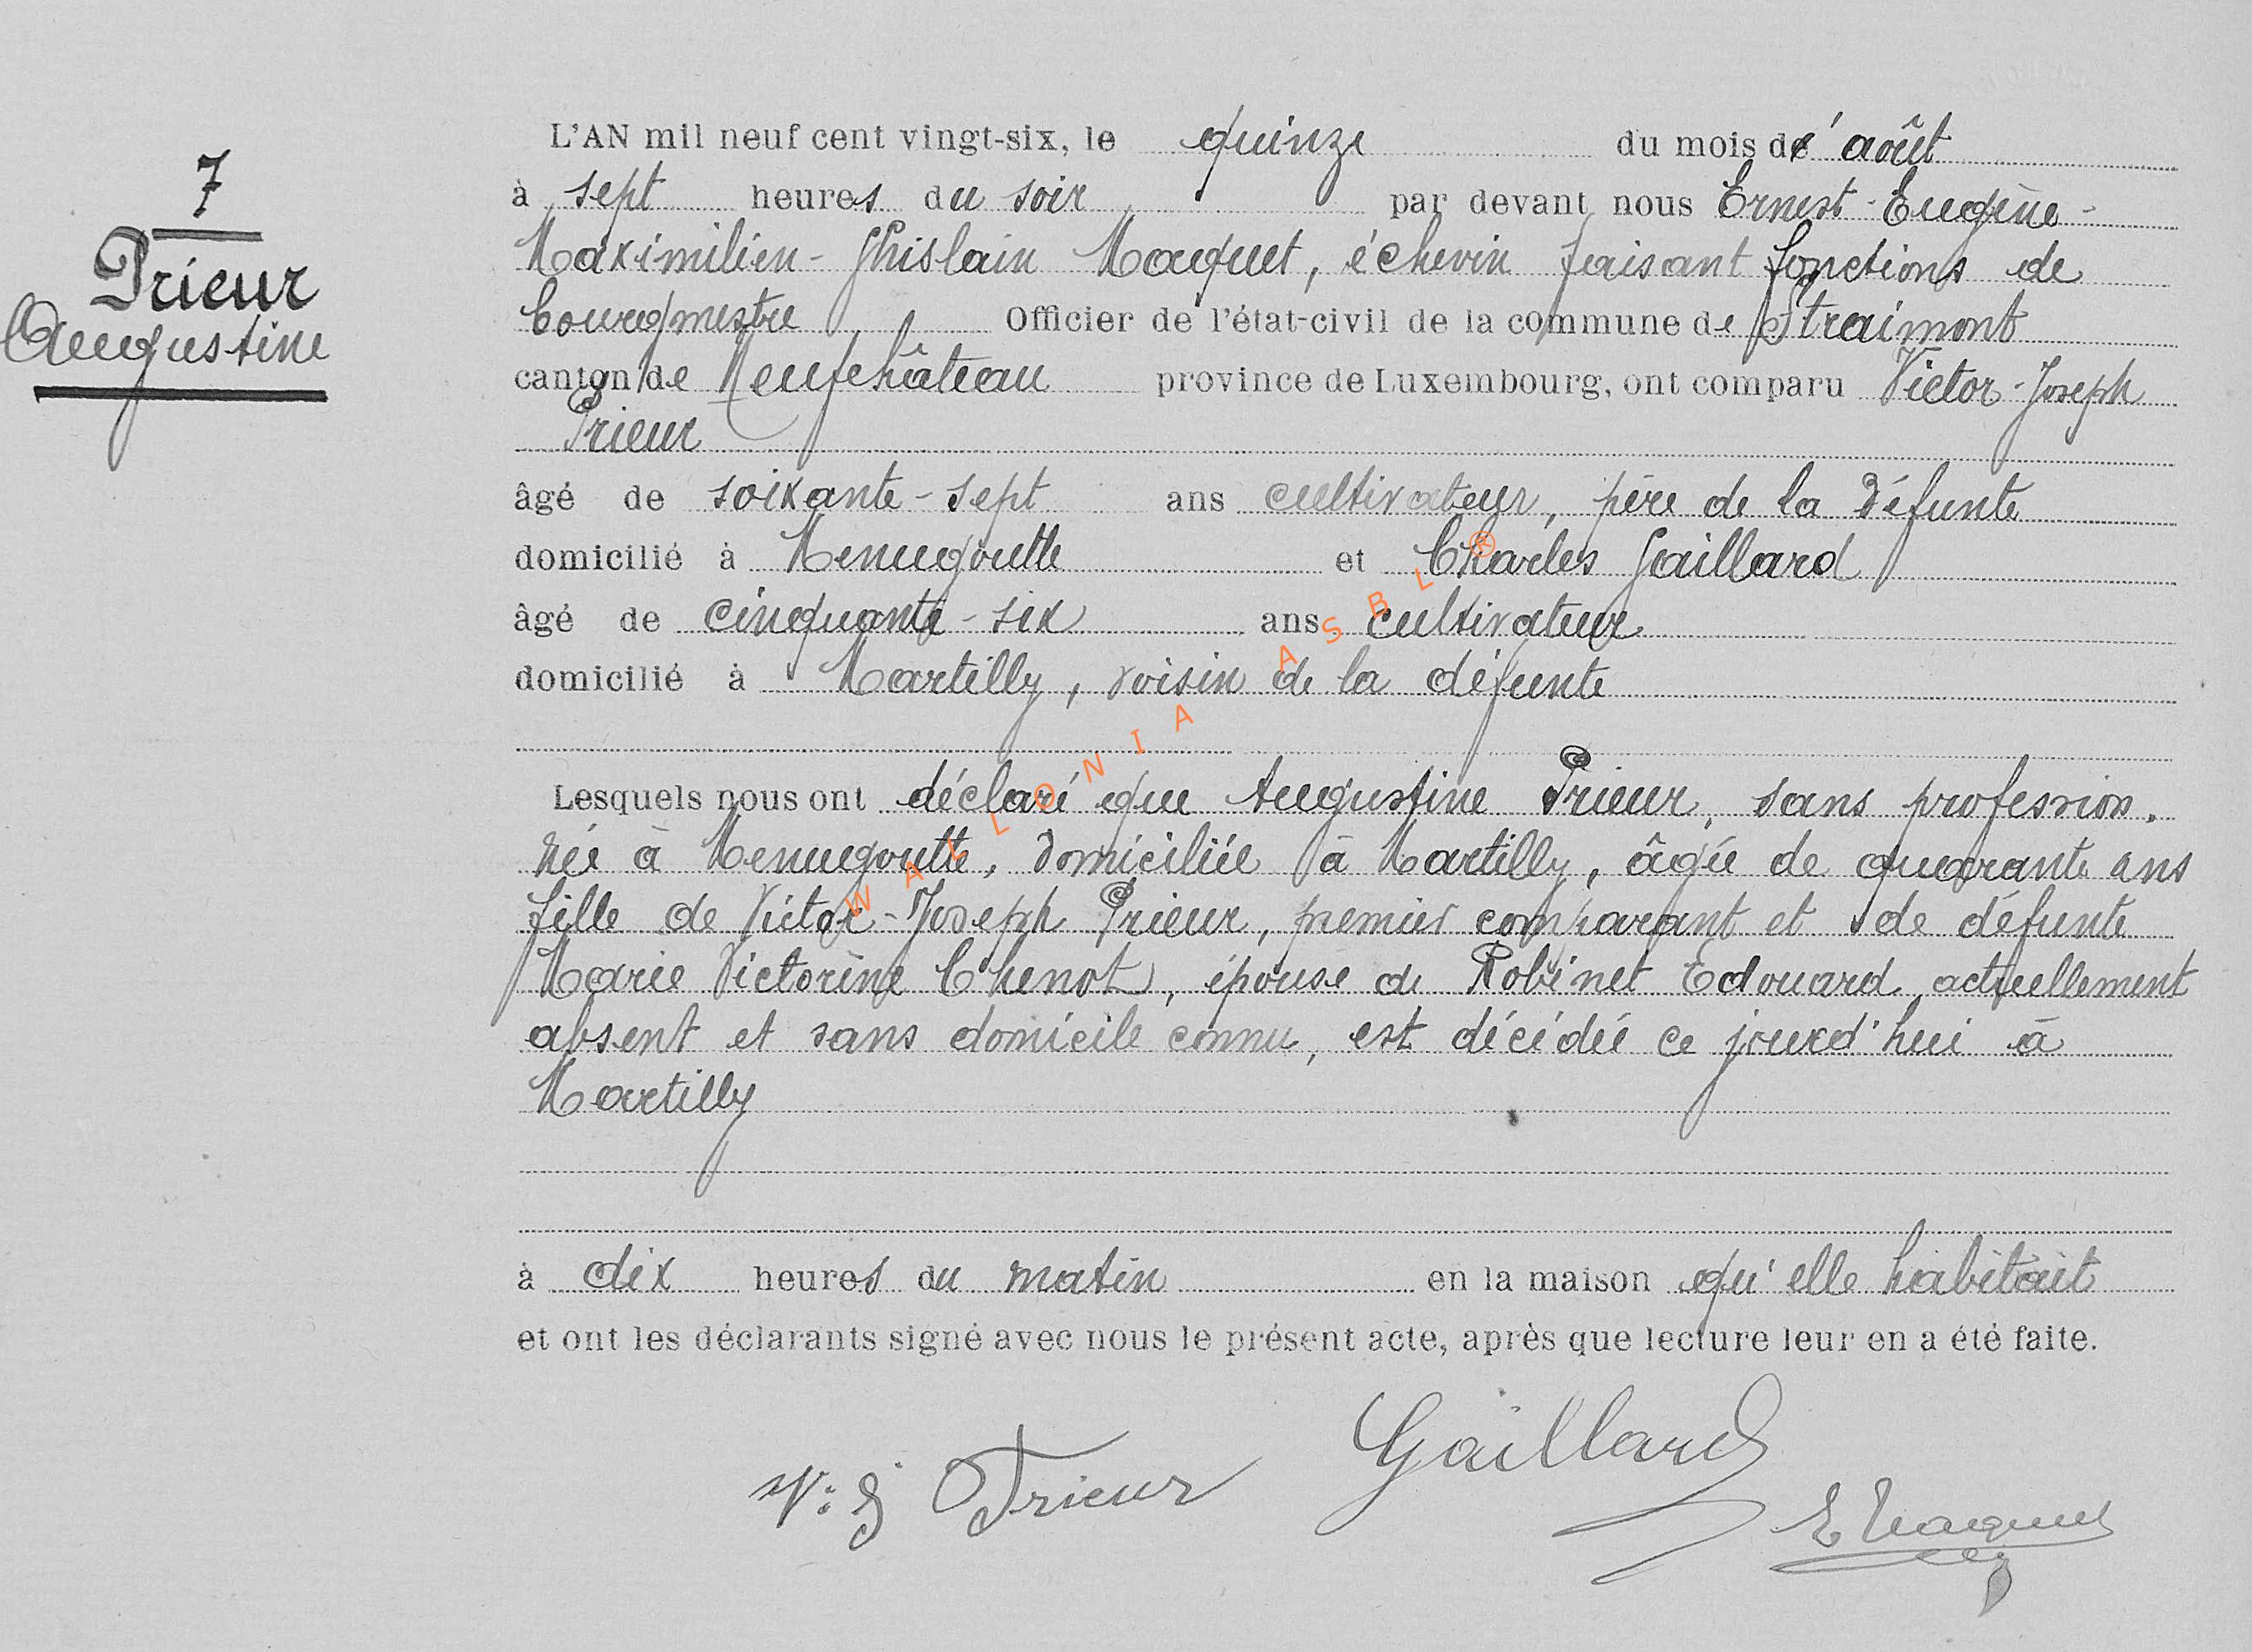 7
Prieur
Augustine
L'AN mil neuf cent vingt-six, le quinze du mois d'août
à sept heures du soir par devant nous Ernest-Eugène-
Maximilien-Ghislain Maquet, échevin faisant fonctions de
bourgmestre Officier de l'état-civil de la commune de Straimont
canton de Neufchâteau province de Luxembourg, ont comparu Victor-Joseph
Prieur
âgé de soixante-sept ans cultivateur, père de la défunte
domicilié à Menugoutte et Charles Gaillard
âgé de cinquante-six ans cultivateur
domicilié à Martilly, voisin de la défunte
Lesquels nous ont déclaré que Augustine Prieur, sans profession,
née à Menugoutte, domiciliée à Martilly, âgée de quarante ans
fille de Victor-Joseph Prieur, premier comparant et de défunte
Marie Victorine Chenot, épouse de Robinet Edouard actuellement
absent et sans domicile connu, est décédée ce jourd'hui à
Martilly
à dix heures du matin en la maison qu'elle habitait
et ont les déclarants signé avec nous le présent acte, après que lecture leur en a été faite.
V: J Prieur
Gaillard
E Maquet
WALLONIA ASBL ®